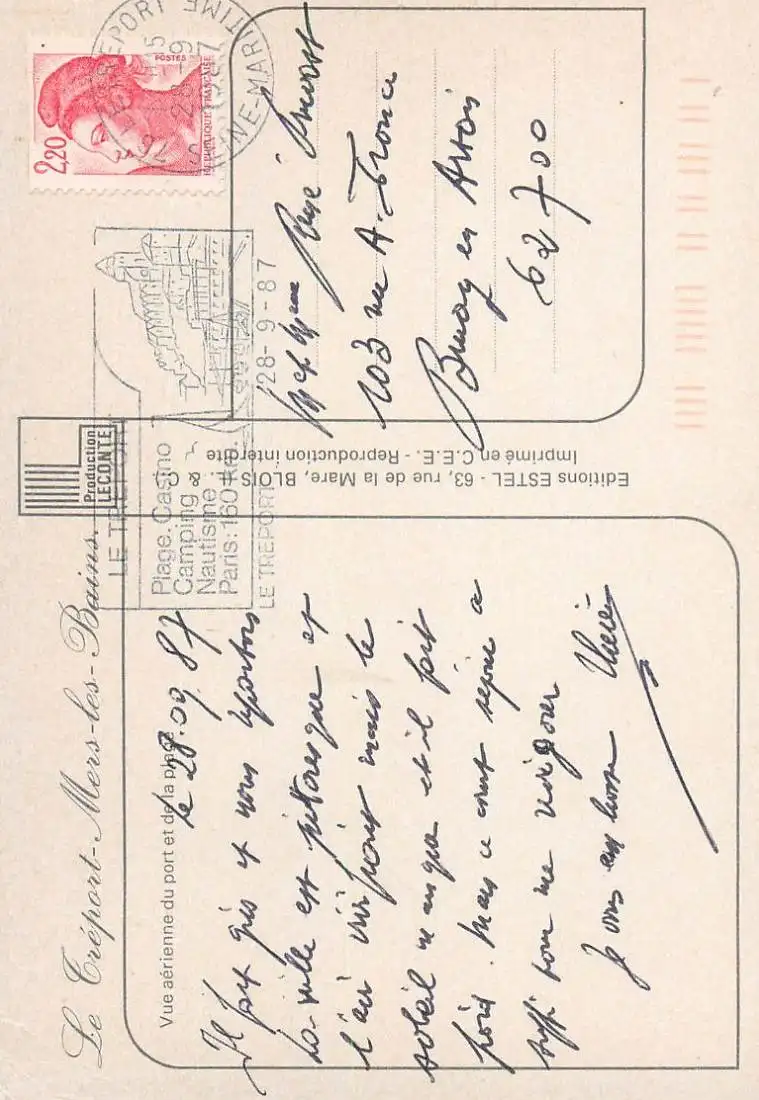 Le Tréport - Mers-les-Bains.
Vue aérienne du port et de la plage
le 28.09.87
Il fait gris et nous
La ville est pittoresque et
l'air vivifiant mais le
soleil manque et il fait
froid. Mais ce court séjour a
suffi pour me
Je vous embrasse
Production
LECONTE
Editions ESTEL - 63, rue de la Mare, BLOIS
Imprimé en C.E.E. - Reproduction interdite
2,20
POSTES
REPUBLIQUE FRANÇAISE
LE TREPORT
28-9
1987
SEINE-MARITIME
LE TREPORT
Plage. Casino
Camping
Nautisme
Paris: 160 km.
LE TREPORT 28-9-87
103 rue A. France
Bruay en Artois
62700